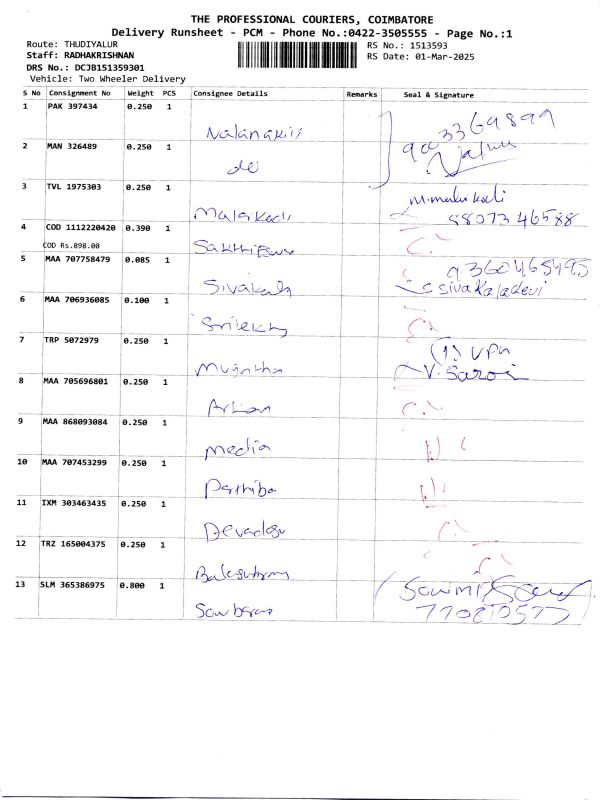 THE PROFESSIONAL COURIERS, COIMBATORE
Delivery Runsheet - PCM - Phone No.:0422-3505555 - Page No.:1
Route: THUDIYALUR RS No.: 1513593
Staff: RADHAKRISHNAN RS Date: 01-Mar-2025
DRS No.: DCJB151359301
Vehicle: Two Wheeler Delivery
S No Consignment No Weight PCS Consignee Details Remarks Seal & Signature
1 PAK 397434 0.250 1
2 MAN 326489 0.250 1
do
3 TVL 1975303 0.250 1
Malarkodi 88073 46588
4 COD 1112220420 0.390 1
COD Rs.898.00
5 MAA 707758479 0.085 1 9360465495
Sivakala Sivakaladevi
6 MAA 706936085 0.100 1
Srilekh
7 TRP 5072979 0.250 1
V. Saroj
8 MAA 705696801 0.250 1
9 MAA 868093084 0.250 1
media
10 MAA 707453299 0.250 1
Parthiba
11 IXM 303463435 0.250 1
Devadasu
12 TRZ 165004375 0.250 1
13 SLM 365386975 0.800 1